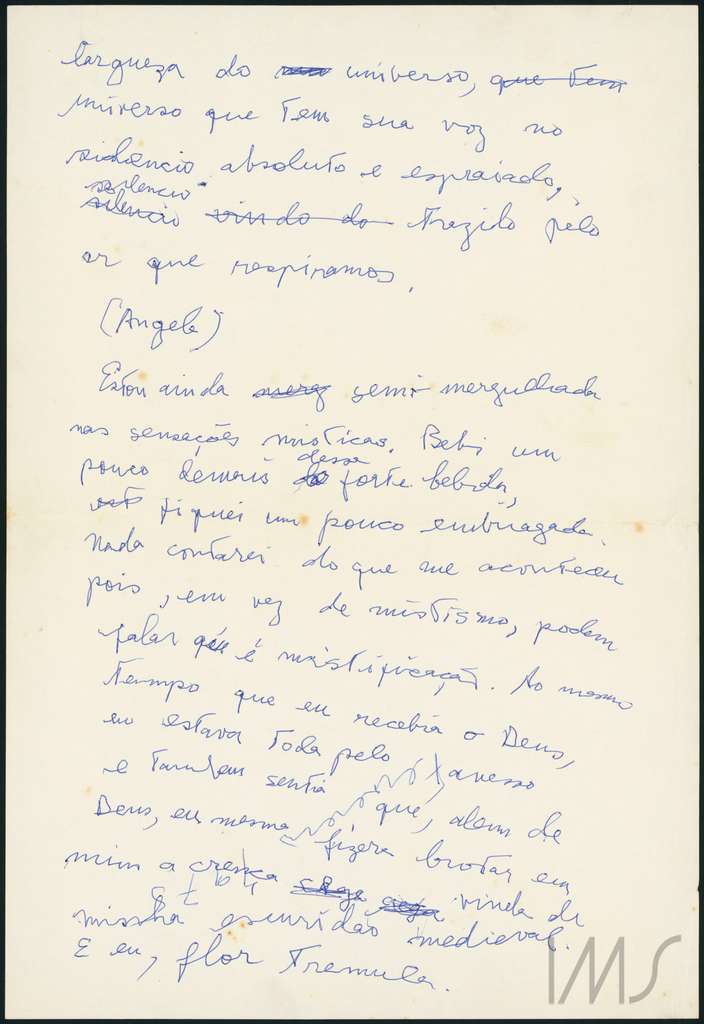 largueza do universo, que tem
universo que tem sua voz no
sidencio absoluto e espraiado,
silencio
silencio vindo do trazido pelo
ar que respiramos.
(Angela)
Estou ainda merg semi-mergulhada
nas sensações misticas. Bebi um
dessa
pouco demais da forte bebida,
fiquei um pouco embriagada.
Nada contarei do que me aconteceu
pois, em vez de mistismo, podem
falar que é mistificação. Ao mesmo
tempo que eu recebia o Deus,
eu estava toda pelo avesso
e tambem sentia
Deus, eu mesma que, alem de
fizera brotar em
mim a crença cega cega vinda de
minha escuridão medieval.
E eu, flor tremula.
IMS